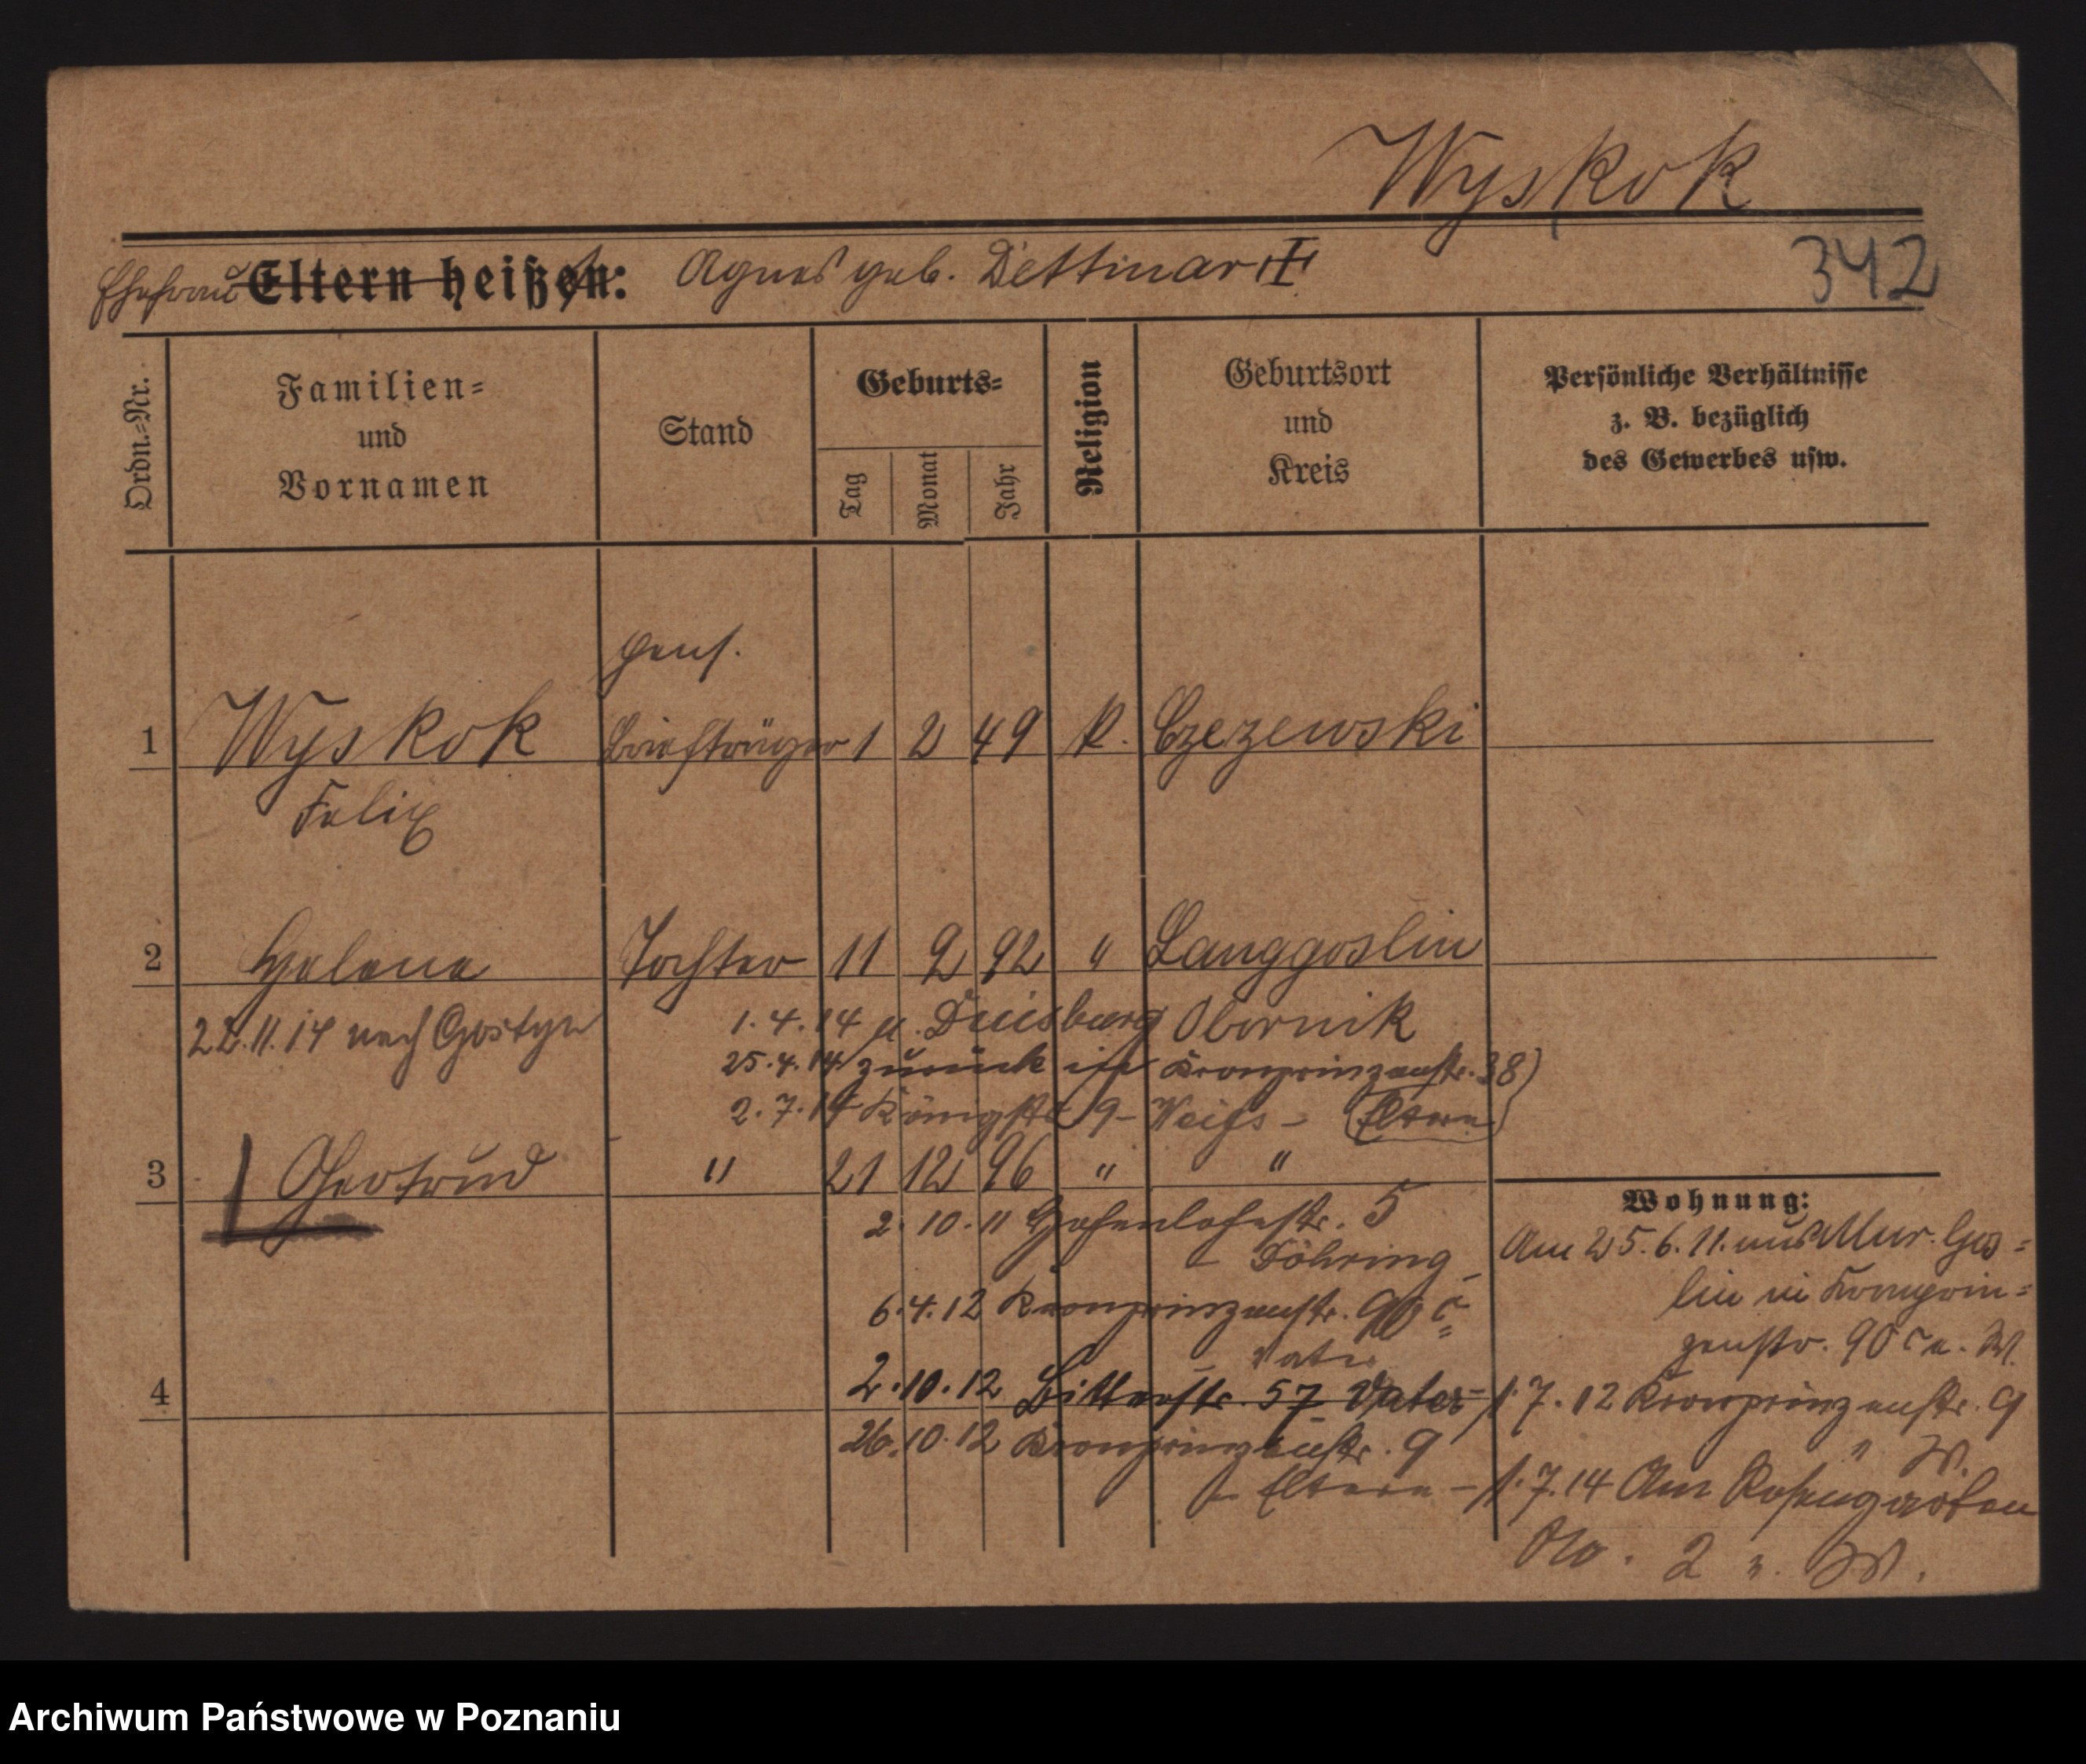 Wyskok
342
Ehefrau Eltern heißen: Agnes geb. Dettmar
Ordn.=Nr.
Familien=
und
Vornamen
Stand
Geburts=
Tag
Monat
Jahr
Religion
Geburtsort
und
Kreis
Persönliche Verhältnisse
z. B. bezüglich
des Gewerbes usw.
pens.
1 Wyskok Briefträger 1 2 49 k. Czezewski
Felix
2 Helene Tochter 11 9 92 " Langgoslin
22.11.14 nach Gostyn 1.4.14 n. Duisburg Obornik
25.4.14 zurück in Kronprinzenstr. 38)
2.7.14 Königstr 9 - Weiss - (Eltern)
3 Gertrud " 21 12 96 " "
2.10.11 Hohenlohestr. 5
- Döhring -
6.4.12 Kronprinzenstr. 90 c
- Vater
4 2.10.12 Bitterstr. 57 Vater -
26.10.12 Kronprinzenstr. 9
- Eltern -
Wohnung:
Am 25.6.11. aus Mur. Gos=
lin in Kronprin=
zenstr. 90 c u. W.
1.7.12 Kronprinzenstr. 9
" W.
1.7.14 Am Rosengarten
No. 2 u. W.
Archiwum Państwowe w Poznaniu